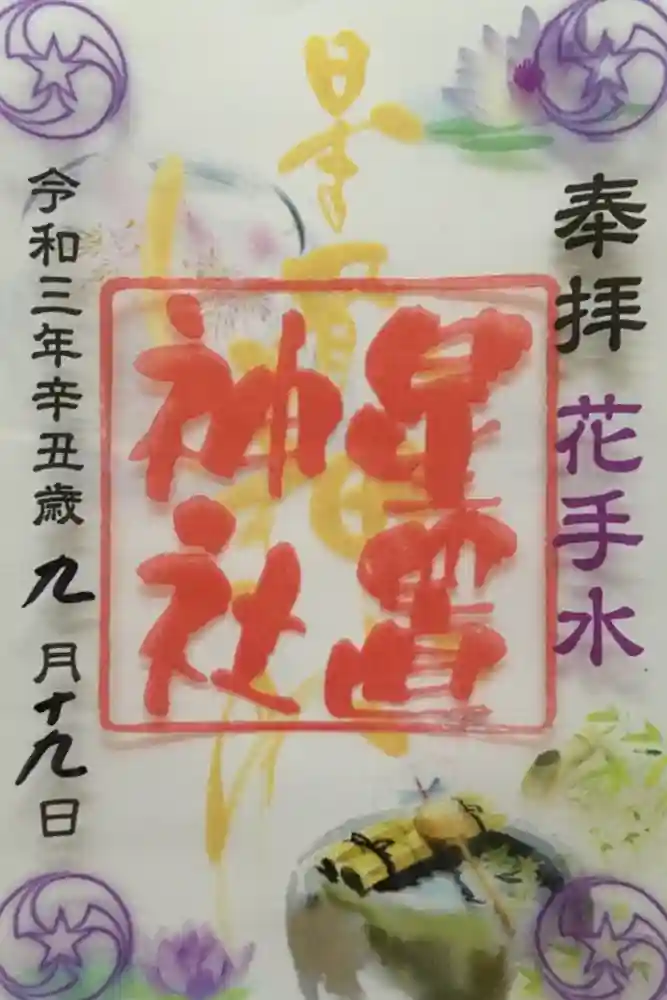 奉拝 花手水
星置神社
星置神社
令和三年辛丑歳 九月十九日